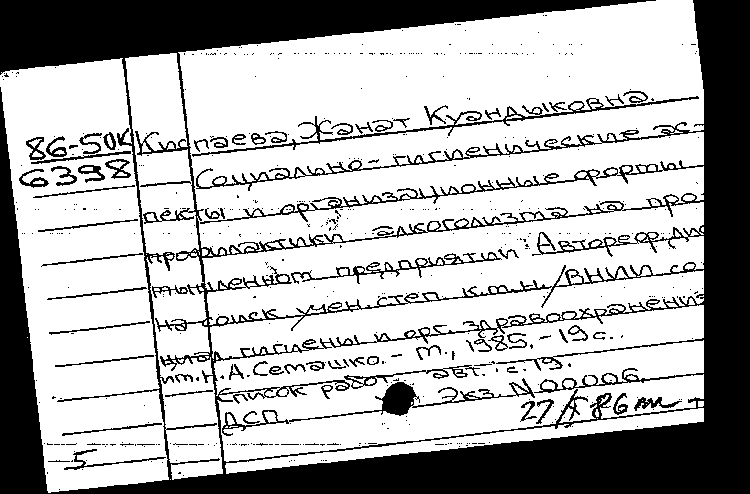 86-50к Киспаева, Жанат Куандыковна.
6398 Социально-гигиенические ас-
пекты и организационные формы
профилактики алкоголизма на про-
мышленном предприятии: Автореф. дис
на соиск. учен. степ. к.м.н. / ВНИИ со-
циал. гигиены и орг. здравоохранения
им. Н.А. Семашко. - М., 1985. - 19 с.
Список работ авт.: с. 19.
ДСП. Экз. N 00006.
27/I 86
5